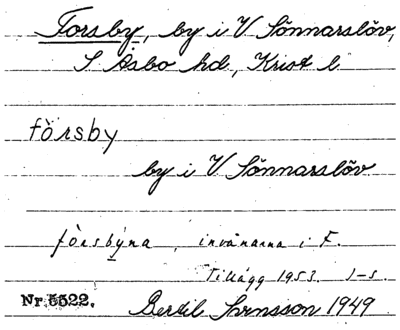 Forsby, by i V Sönnarslöv,
S Åsbo hd, Krist l
fòrsby
by i V Sönnarslöv
fòrsbýna, invånarna i F.
Tillägg 1953. I-s.
Nr 5522. Bertil Svensson 1949